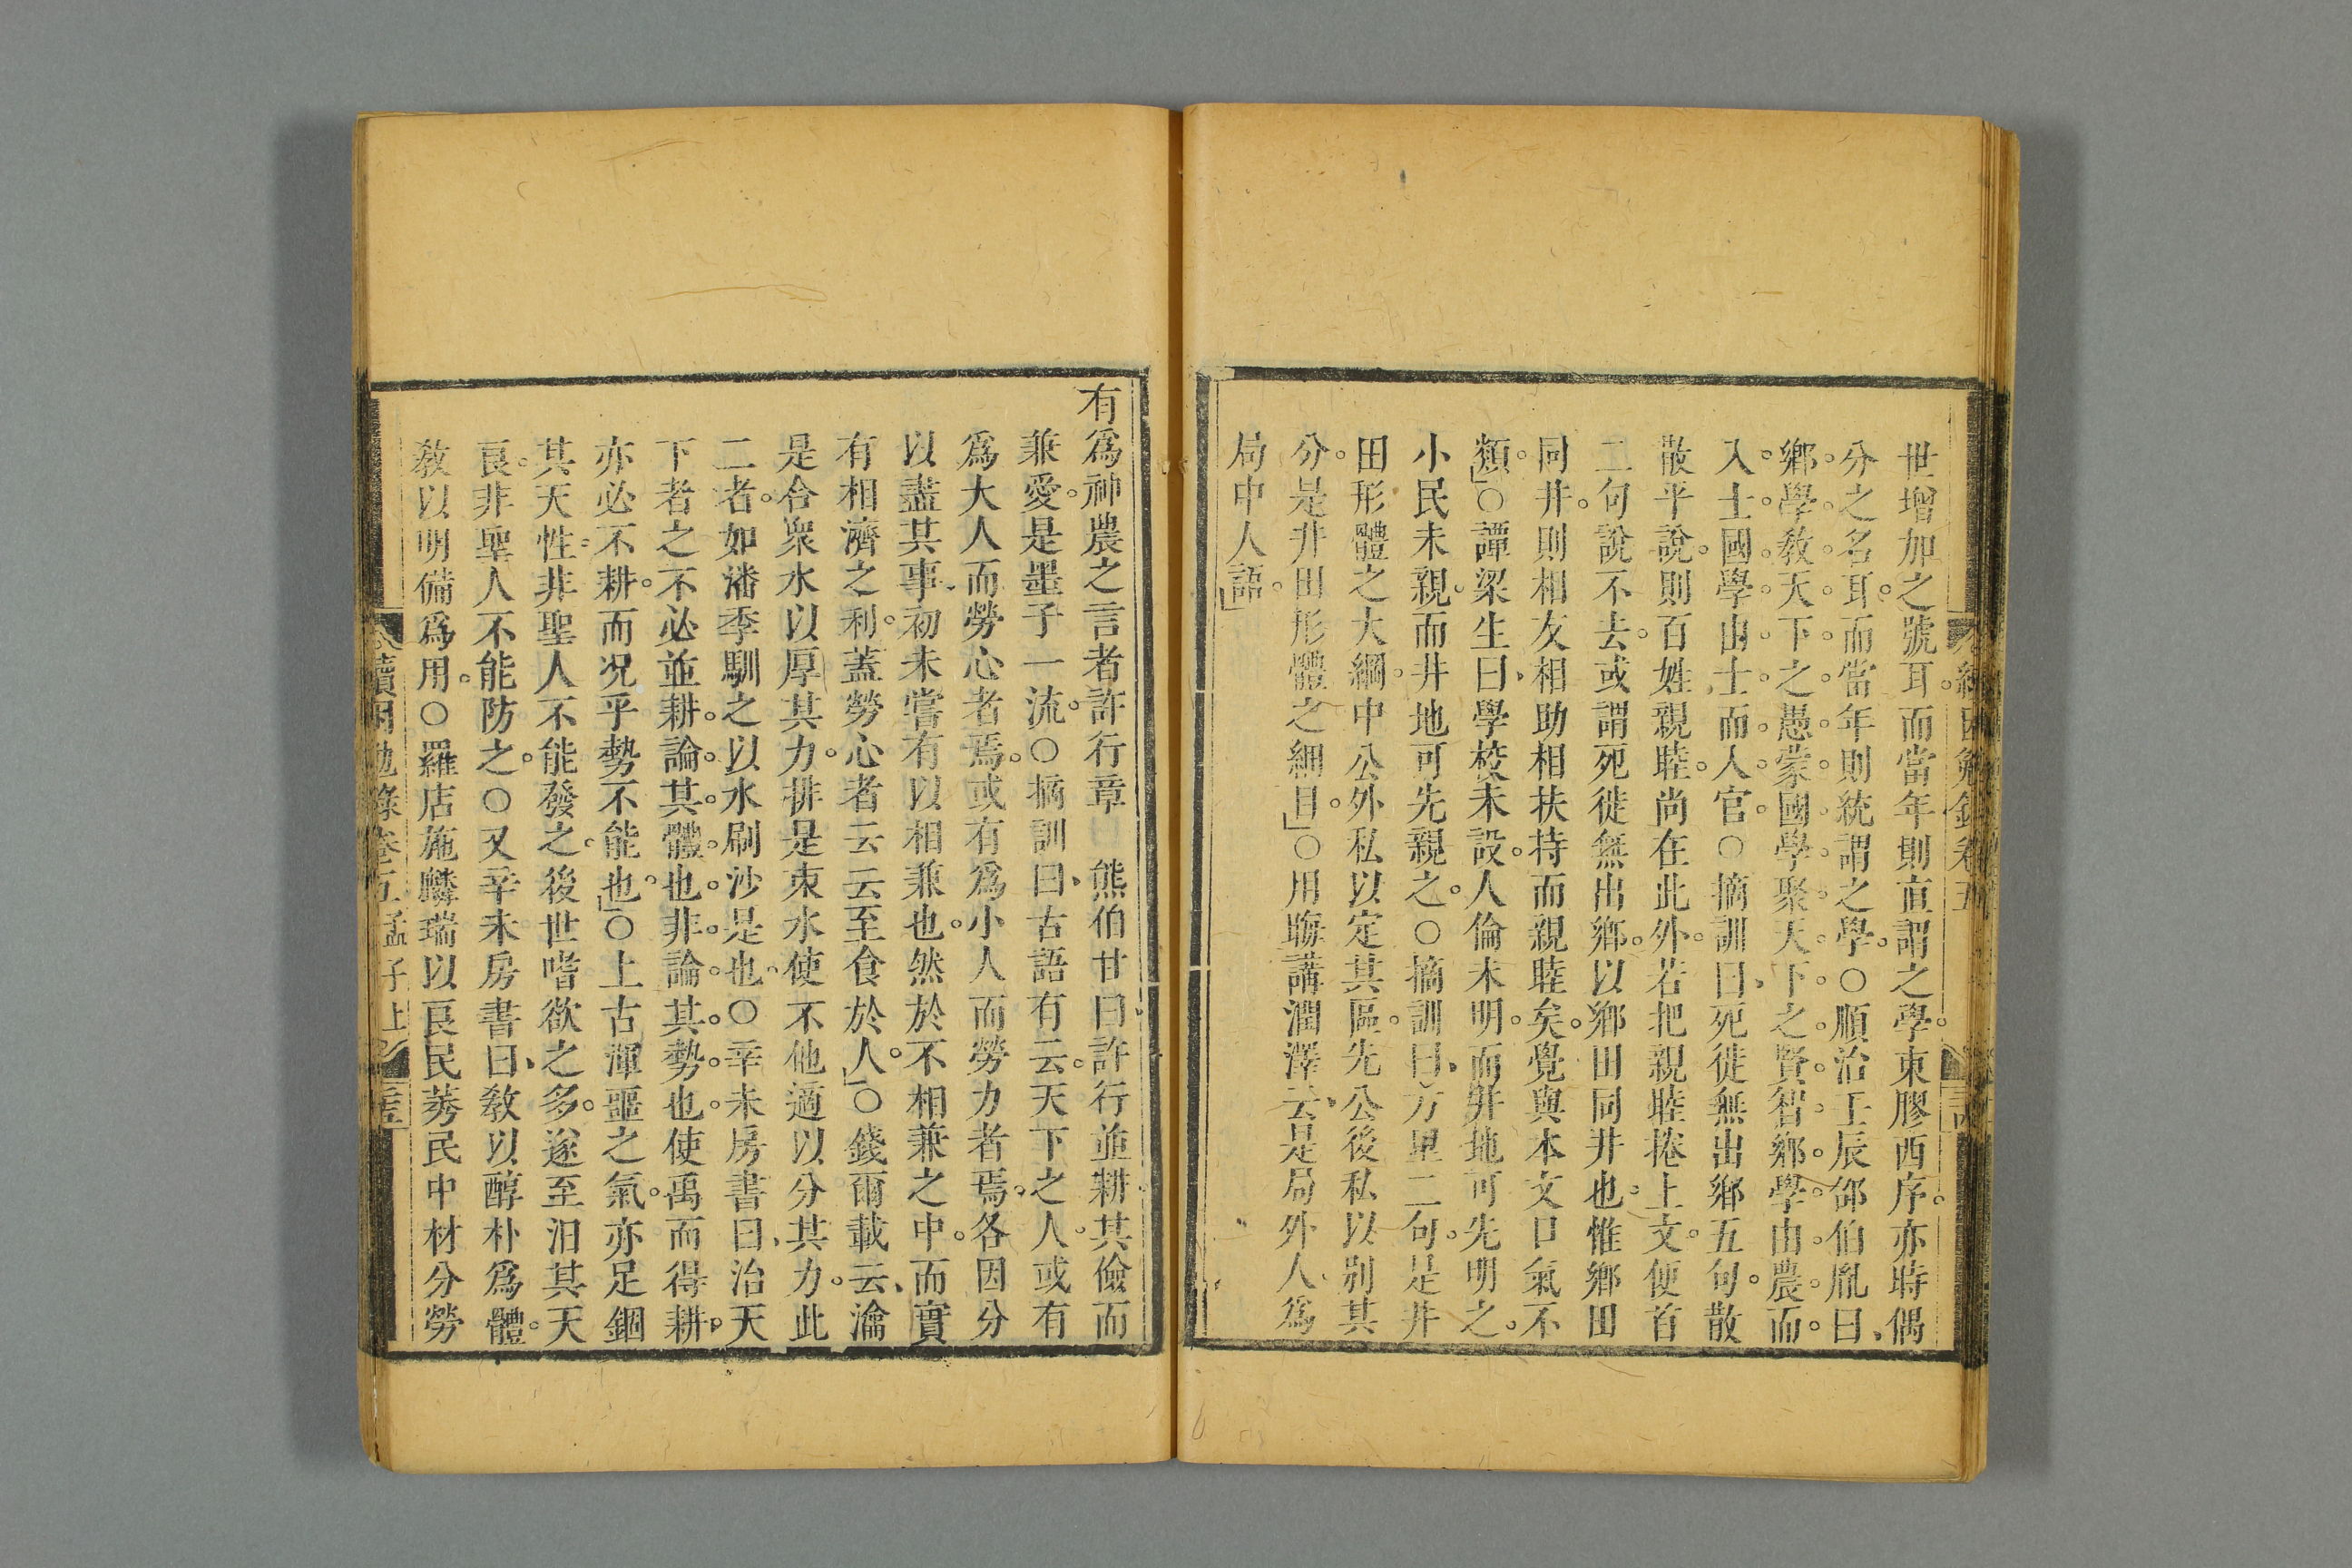 世增加之號耳。而當年則直謂之學。東膠西序。亦時偶
分之名耳。而當年則統謂之學。○順治壬辰邵伯胤曰、
鄉學敎天下之愚蒙國學聚天下之賢智。鄉學由農而。
入士國學由士而人官。○摘訓曰、死徙無出鄉五句。散
散平說。則百姓親睦。尚在此外。若把親睦捲上文。便首
二句說不去。或謂死徙無出鄉。以鄉田同井也。惟鄉田
同井。則相友相助相扶持而親睦矣。覺與本文口氣不
類。」○譚梁生曰、學校未設。人倫未明。而井地可先明之。
小民未親。而井地可先親之。○摘訓曰、方里二句。是井
田形體之大綱。中公外私以定其區。先公後私以別其
分。是井田形體之細目。」○用晦講潤澤云、是局外人爲
局中人語。」
有爲神農之言者許行章 熊伯甘曰、許行並耕。其儉而
兼愛。是墨子一流。○摘訓曰、古語有云。天下之人。或有
爲大人而勞心者焉。或有爲小人而勞力者焉。各因分
以盡其事、初未嘗有以相兼也。然於不相兼之中。而實
有相濟之利。蓋勞心者云云至食於人。」○錢爾載云、瀹
是合衆水以厚其力。排是束水使不他適以分其力。此
二者。如潘季馴之以水刷沙是也。○辛未房書曰、治天
下者之不必並耕。論其體也。非論其勢也。使禹而得耕。
亦必不耕。而况乎勢不能也。」○上古渾噩之氣。亦足錮
其天性。非聖人不能發之。後世嗜欲之多。遂至汨其天
良。非聖人不能防之。○又辛未房書曰、敎以醇朴爲體。
敎以明備爲用。○羅店施麟瑞以良民莠民中材分勞
續困勉錄卷五 孟子上